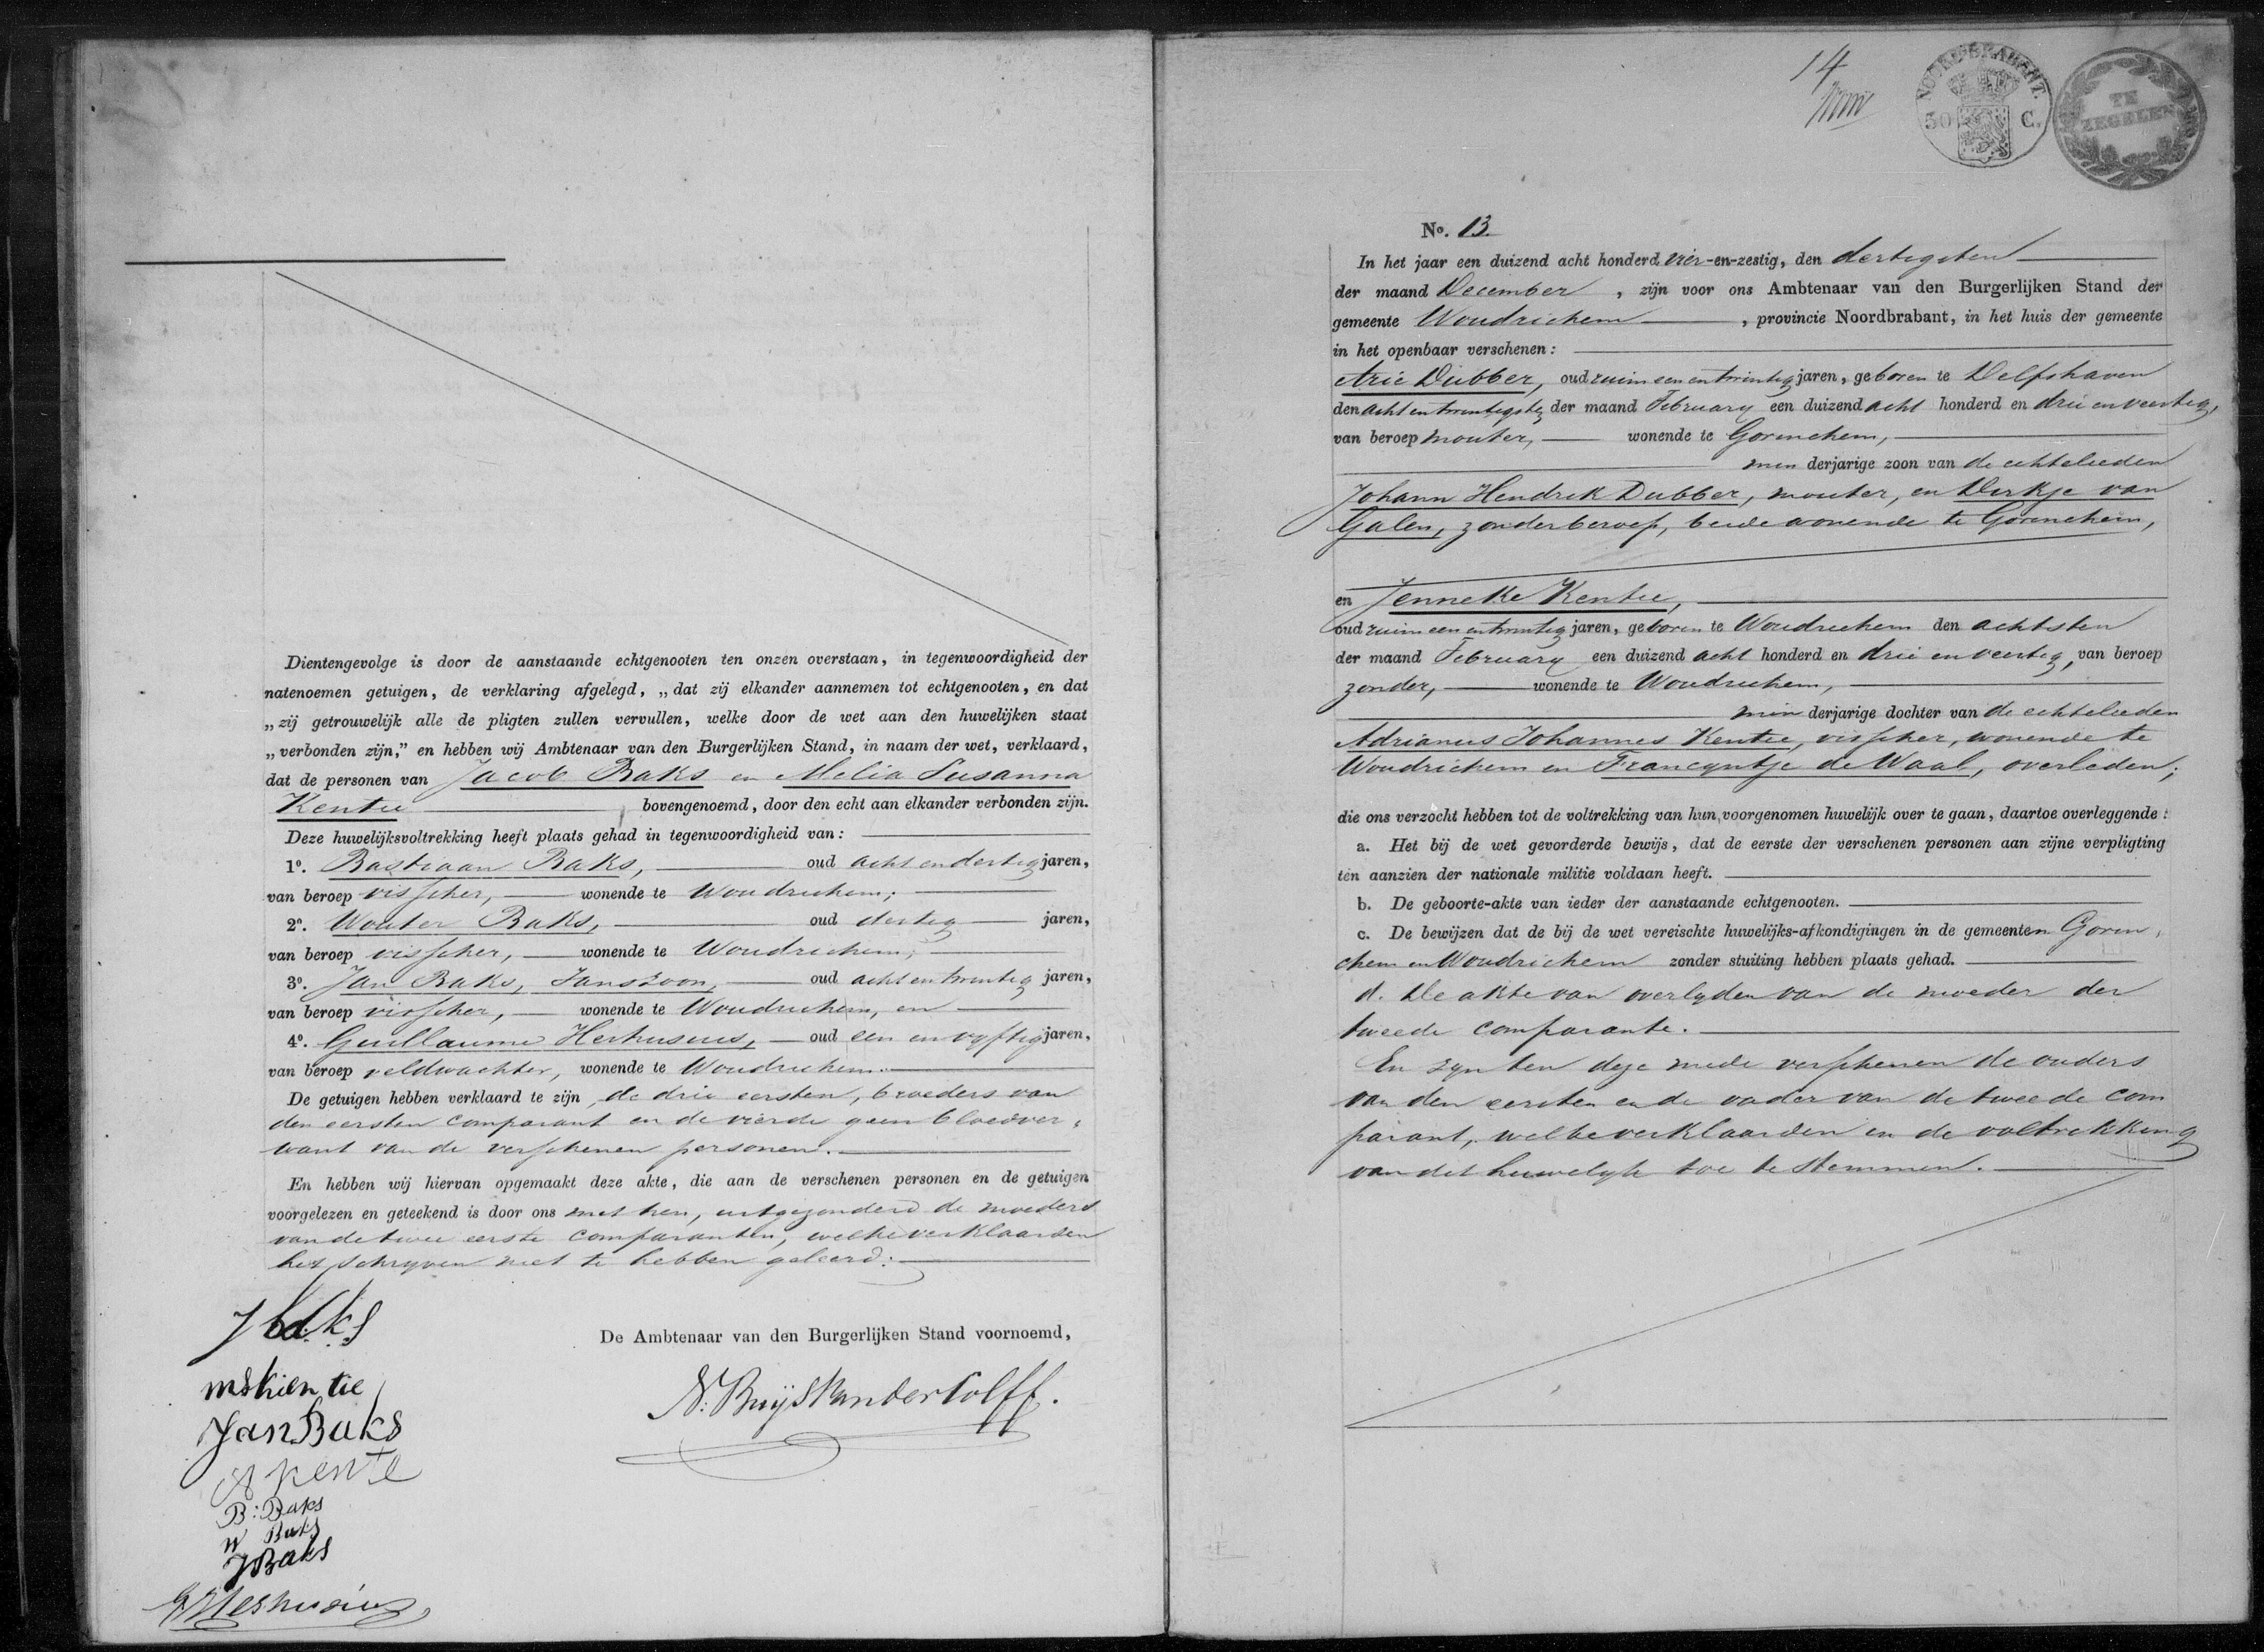 Dientengevolge is door de aanstaande echtgenooten ten onzen overstaan, in tegenwoordigheid der
natenoemen getuigen, de verklaring afgelegd, „dat zij elkander aannemen tot echtgenooten, en dat
„zij getrouwelijk alle de pligten zullen vervullen, welke door de wet aan den huwelijken staat
„verbonden zijn,” en hebben wij Ambtenaar van den Burgerlijken Stand, in naam der wet, verklaard,
dat de personen van Jacob Baks en Melia Susanna
Kentie bovengenoemd, door den echt aan elkander verbonden zijn.
Deze huwelijksvoltrekking heeft plaats gehad in tegenwoordigheid van:
1o. Bastiaan Baks, oud acht en dertig jaren,
van beroep visscher, wonende te Woudrichem;
2o. Wouter Baks, oud dertig jaren,
van beroep visscher, wonende te Woudrichem;
3o. Jan Baks, Janszoon, oud acht en twintig jaren,
van beroep visscher, wonende te Woudrichem, en
4o. Guillaume Heshusius, oud een en vyftig jaren,
van beroep veldwachter, wonende te Woudrichem.
De getuigen hebben verklaard te zijn de drie eersten, broeders van
den eersten comparant en de vierde geen bloedver-
want van de verschenen personen.
En hebben wij hiervan opgemaakt deze akte, die aan de verschenen personen en de getuigen
voorgelezen en geteekend is door ons met hen, uitgezonderd de moeders
van de twee eerste comparanten, welke verklaarden
het schryven niet te hebben geleerd.
J baks
De Ambtenaar van den Burgerlijken Stand voornoemd,
ms kientie
N. Buijs van der Colff.
Jan Baks
A kente
B: Baks
W Baks
J Baks
G Heshusius
14
NOORD-BRABANT.
50 C.
TE
ZEGELEN
No. 13.
In het jaar een duizend acht honderd vier-en-zestig, den dertigsten
der maand December, zijn voor ons Ambtenaar van den Burgerlijken Stand der
gemeente Woudrichem, provincie Noordbrabant, in het huis der gemeente
in het openbaar verschenen:
Arie Dubber, oud ruim een en twintig jaren, geboren te Delfshaven
den acht en twintigste der maand February een duizend acht honderd en drie en veertig,
van beroep mouter, wonende te Gorinchem,
minderjarige zoon van de echtelieden
Johann Hendrik Dubber, mouter, en Dirkje van
Galen, zonder beroep, beide wonende te Gorinchem,
en Jenneke Kentie,
oud ruim een en twintig jaren, geboren te Woudrichem den achtsten
der maand February een duizend acht honderd en drie en veertig, van beroep
zonder, wonende te Woudrichem,
minderjarige dochter van de echtelieden
Adrianus Johannes Kentie, visscher, wonende te
Woudrichem en Francyntje de Waal, overleden;
die ons verzocht hebben tot de voltrekking van hun voorgenomen huwelijk over te gaan, daartoe overleggende:
a. Het bij de wet gevorderde bewijs, dat de eerste der verschenen personen aan zijne verpligting
ten aanzien der nationale militie voldaan heeft.
b. De geboorte-akte van ieder der aanstaande echtgenooten.
c. De bewijzen dat de bij de wet vereischte huwelijks-afkondigingen in de gemeenten Gorin-
chem en Woudrichem zonder stuiting hebben plaats gehad.
d. De akte van overlyden van de moeder der
tweede comparante.
En zyn ten deze mede verschenen de ouders
van den eersten en de vader van de tweede com
parant, welke verklaarden in de voltrekking
van dit huwelyk toe te stemmen.